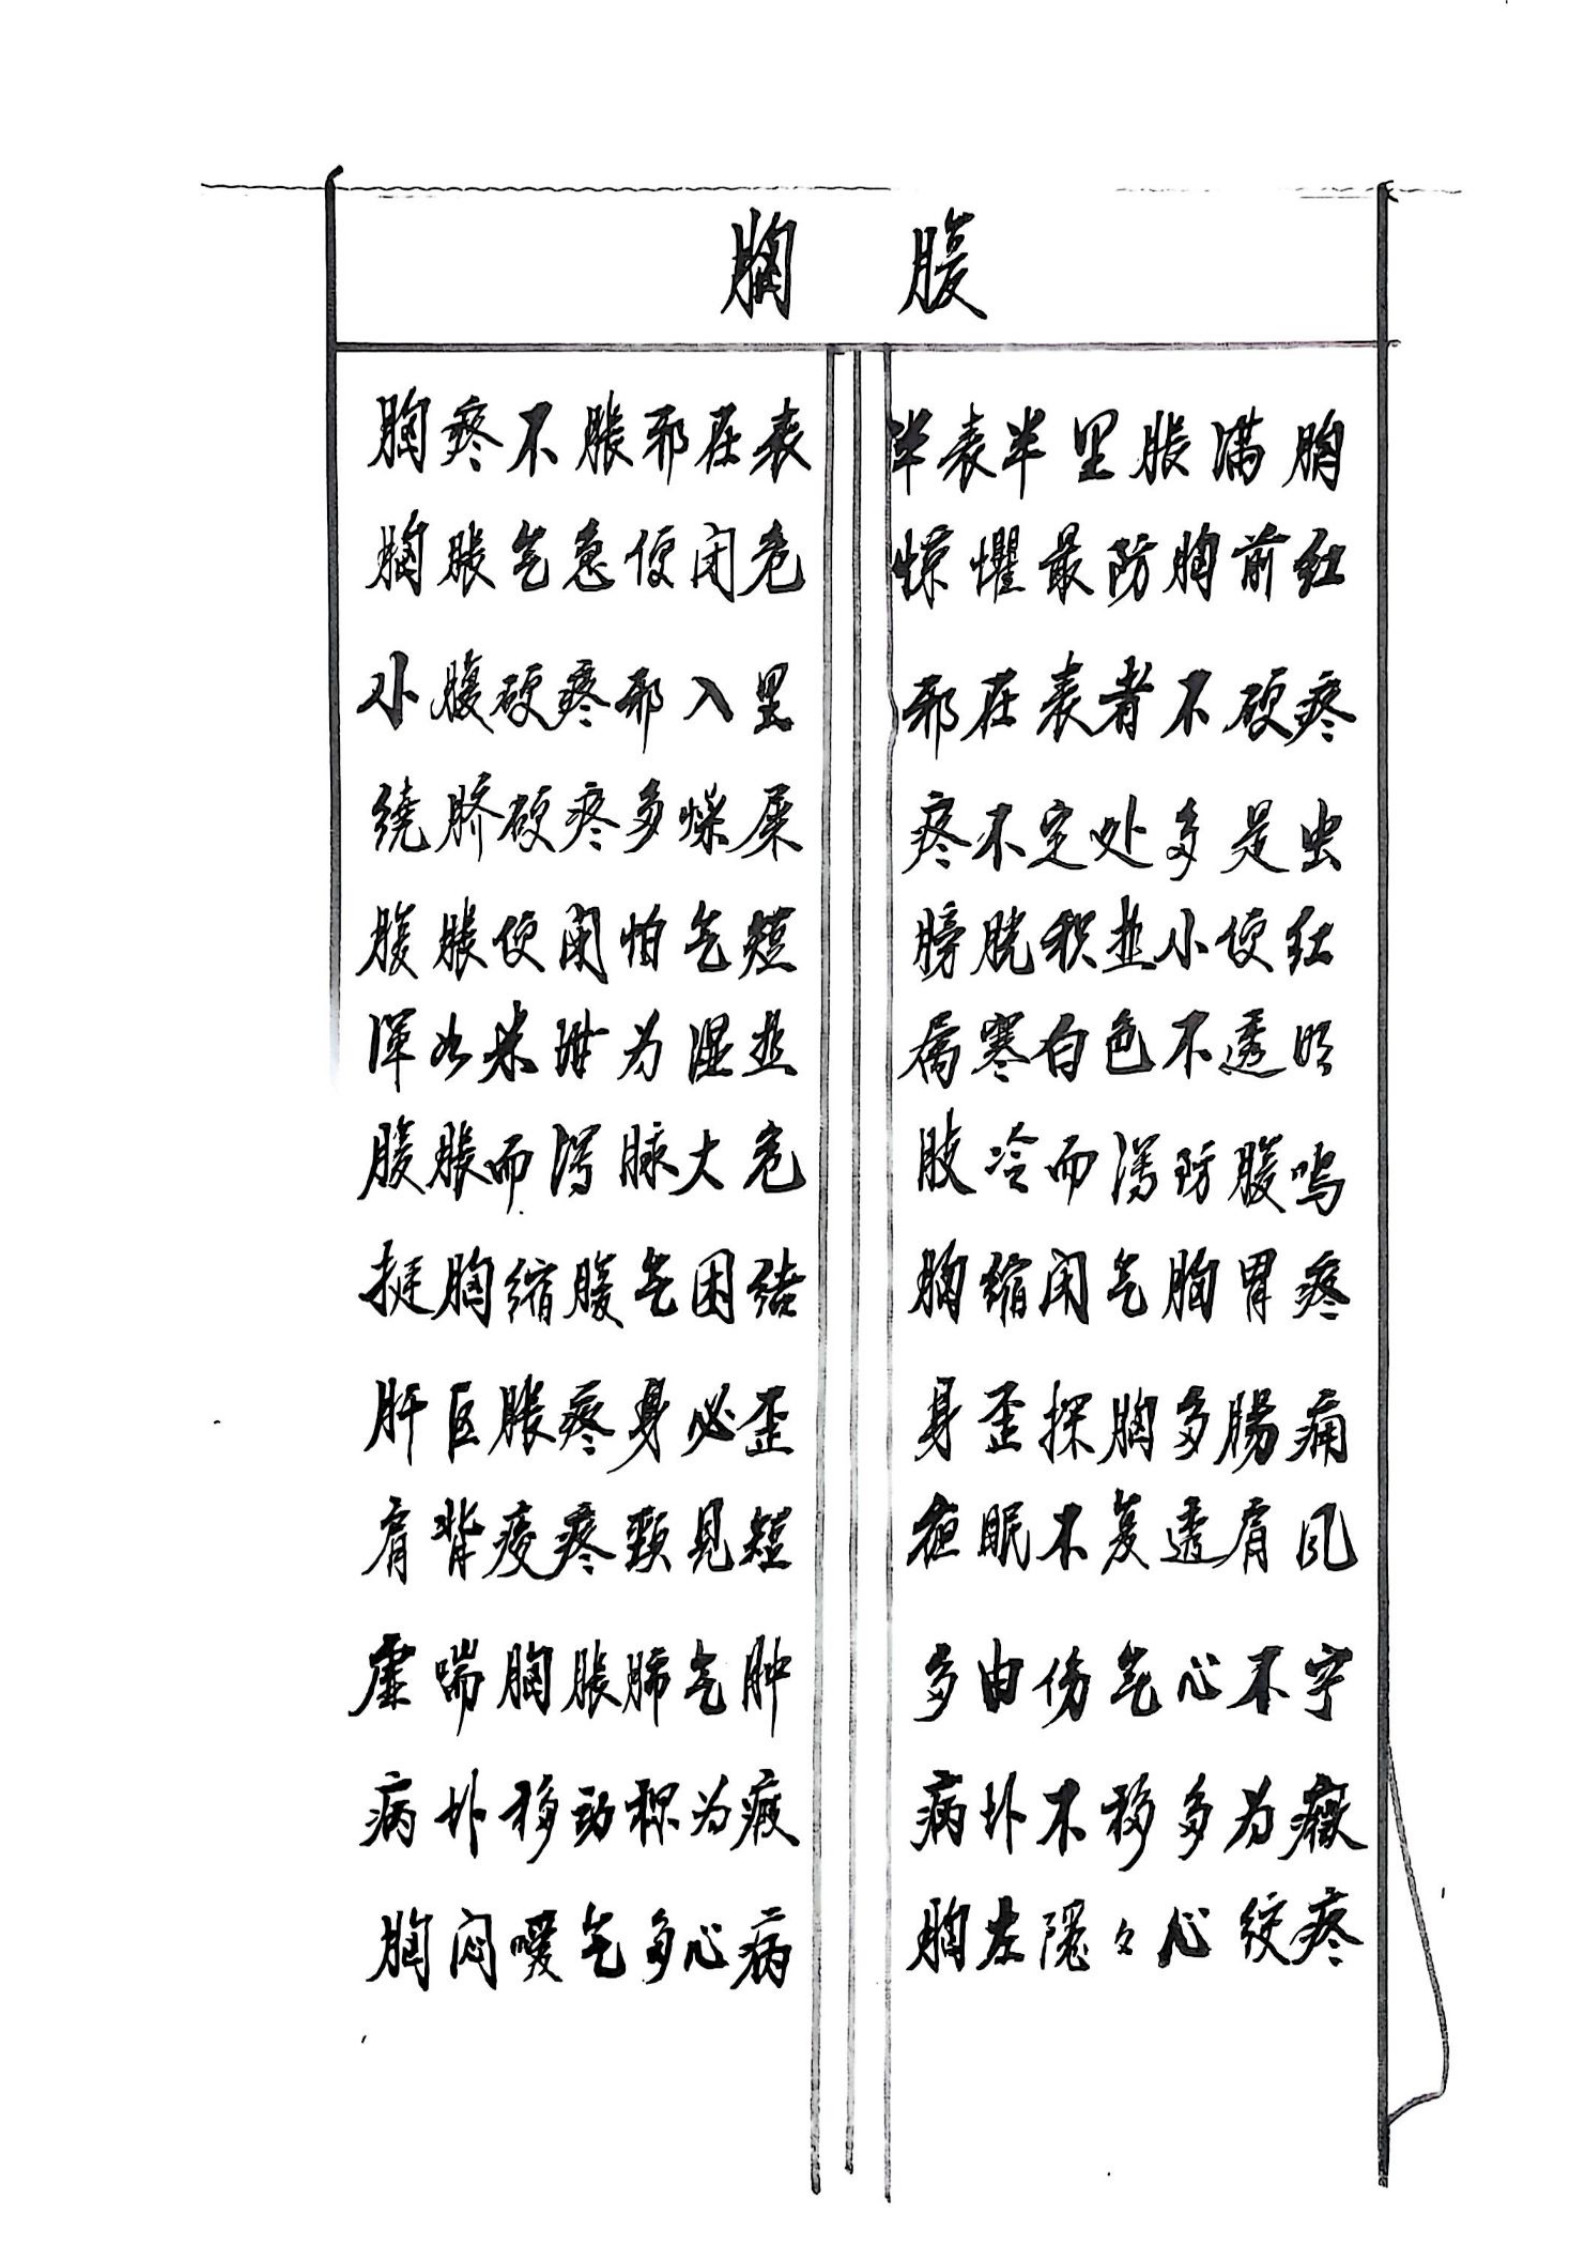 胸腹
胸疼不胀邪在表 半表半里胀满胸
胸胀气急便闭危 惊惧最防胸前红
小腹硬疼邪入里 邪在表者不硬疼
绕脐硬疼多燥屎 疼不定处多是虫
腹胀便闭怕气短 膀胱积热小便红
浑如米泔为湿热 属寒白色不透明
腹胀而泻脉大危 肢冷而泻防腹鸣
挺胸缩腹气困结 胸缩闭气胸胃疼
肝区胀疼身必歪 身歪探胸多肠痛
肩背疼颈见短 眠不复透肩风
虚喘胸胀肺气肿 多由伤气心不宁
病块移动称为瘕 病块不移多为癥
胸闷嗳气多心病 胸左隐々心绞疼